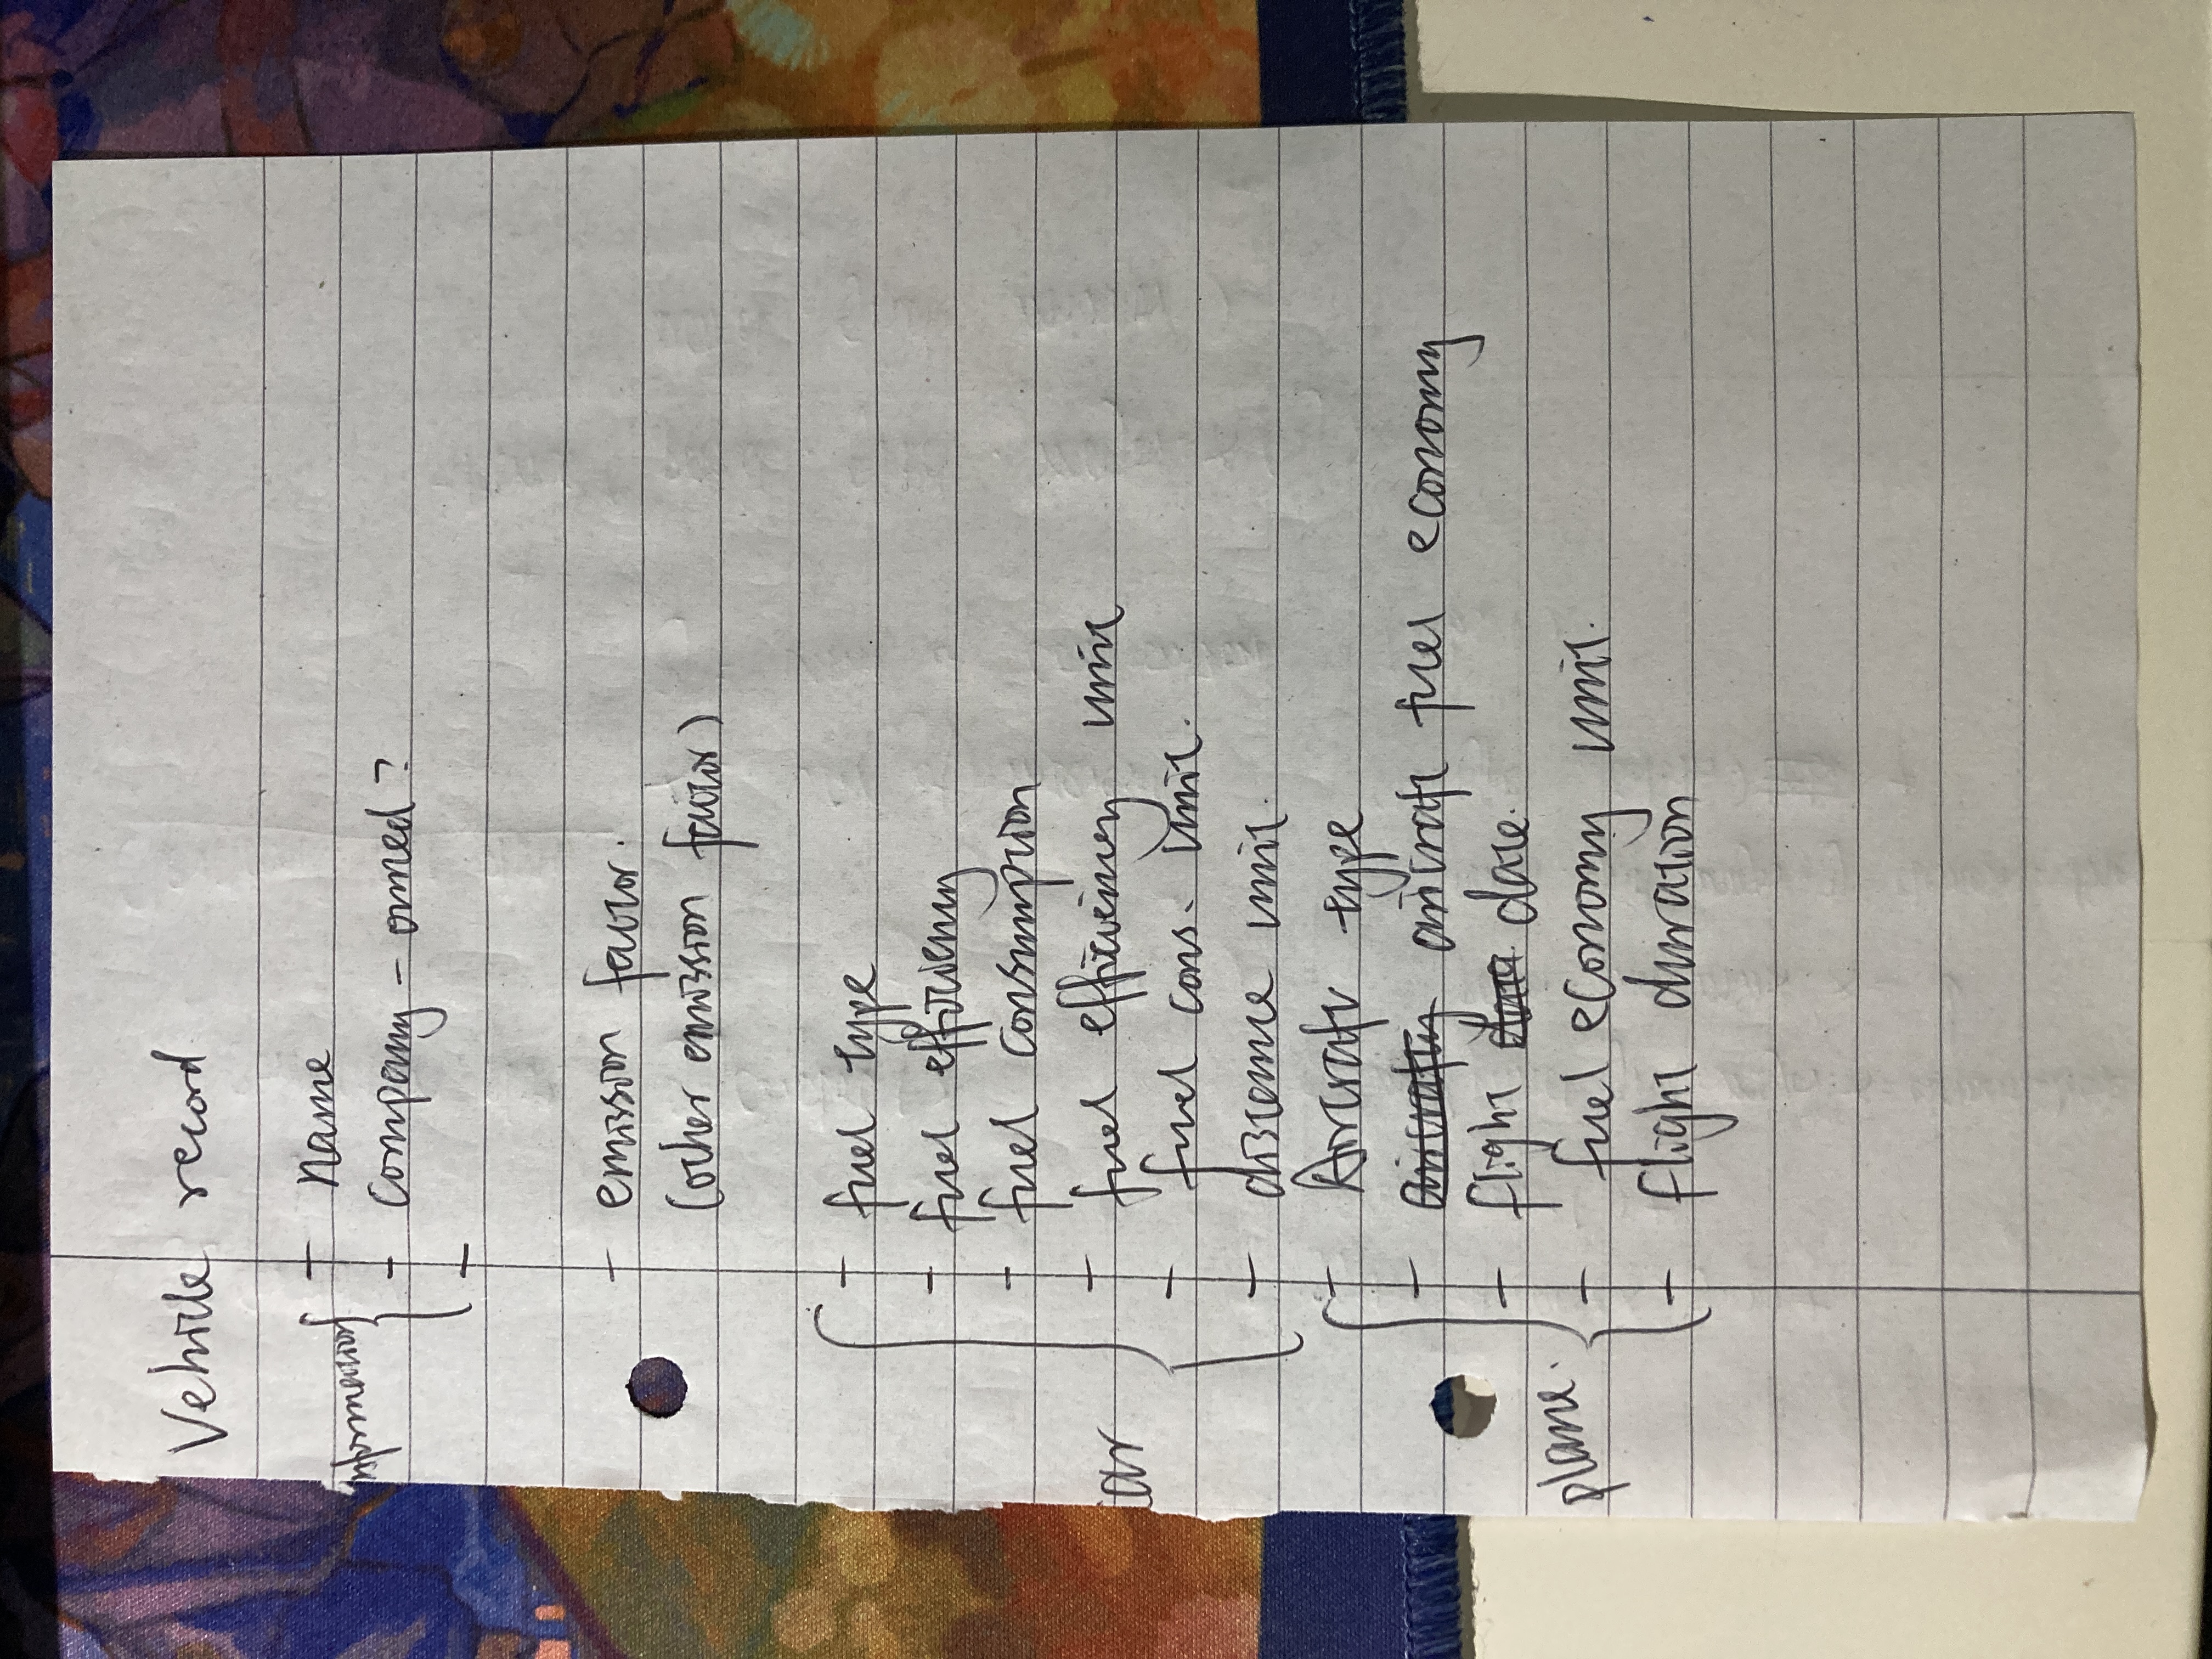 Vehicle record
- name
information
- company-owned?
-
- emission factor.
(other emission factor)
- fuel type
- fuel efficiency
- fuel consumption
- fuel efficiency unit
car
- fuel cons. unit.
- distance unit.
- Aircraft type
- aircraft fuel economy
- flight date.
plane.
- fuel economy unit.
- flight duration